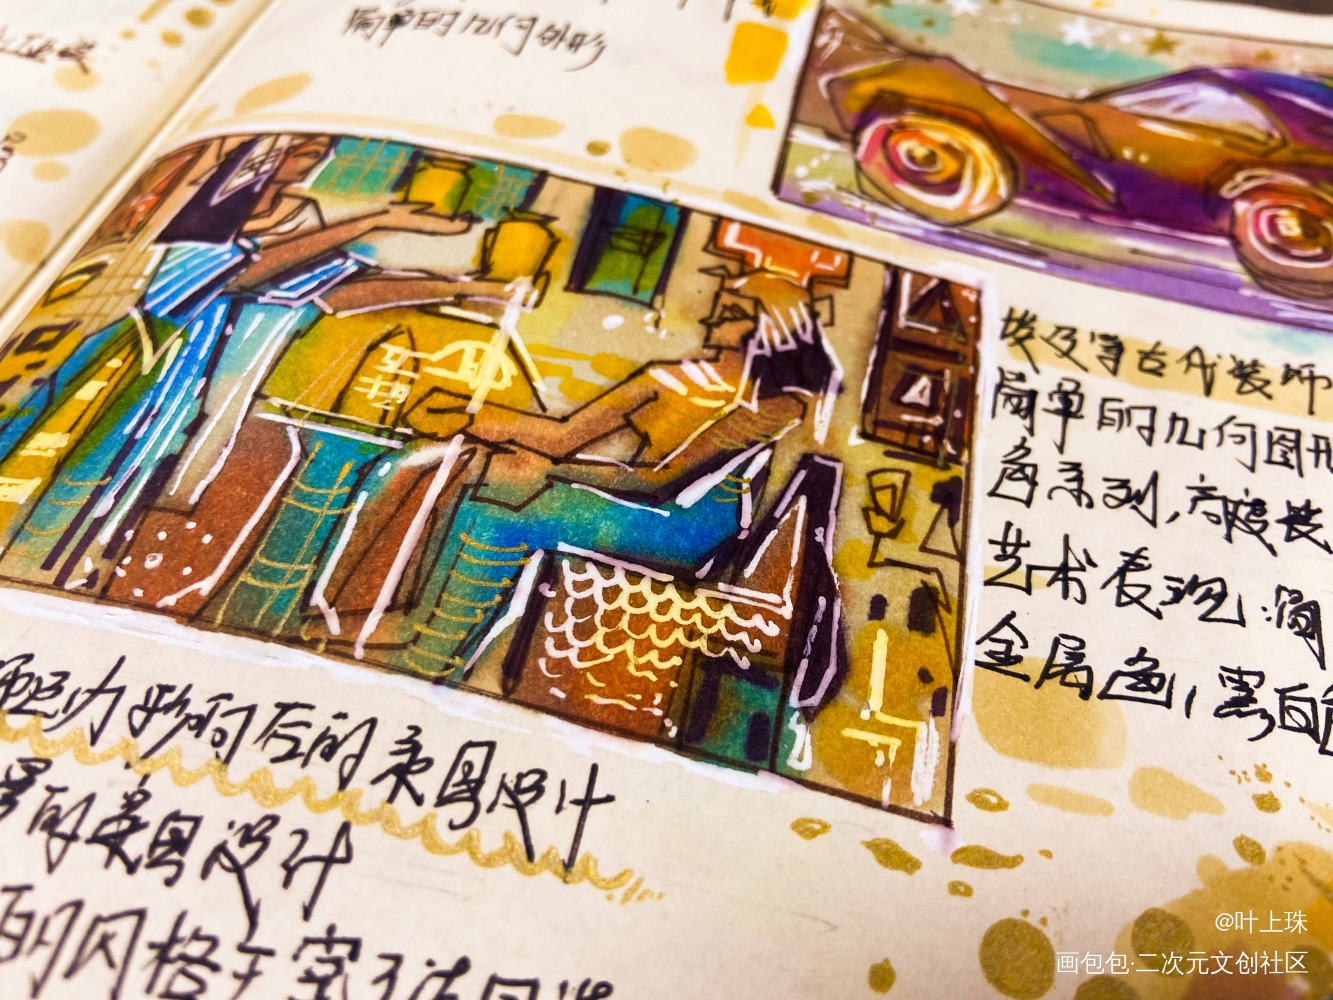 简单的几何外形
埃及等古代装饰
简单的几何图形
色系列，高度装
艺术表现：简
金属色，黑白色
力影响后的美国设计
的美国设计
的风格主
@叶上珠
画包包·二次元文创社区